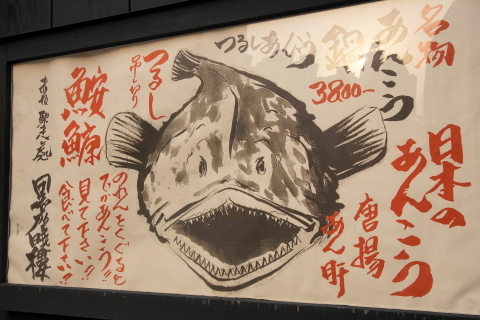 名物
あんこう
鍋
3800-
つるしあんこう
日本の
あんこう
唐揚
あん肝
つるし
吊し切り
鮟鱇
のれんをくぐると
でかあんこう
見て下さい!!
食べて下さい!!